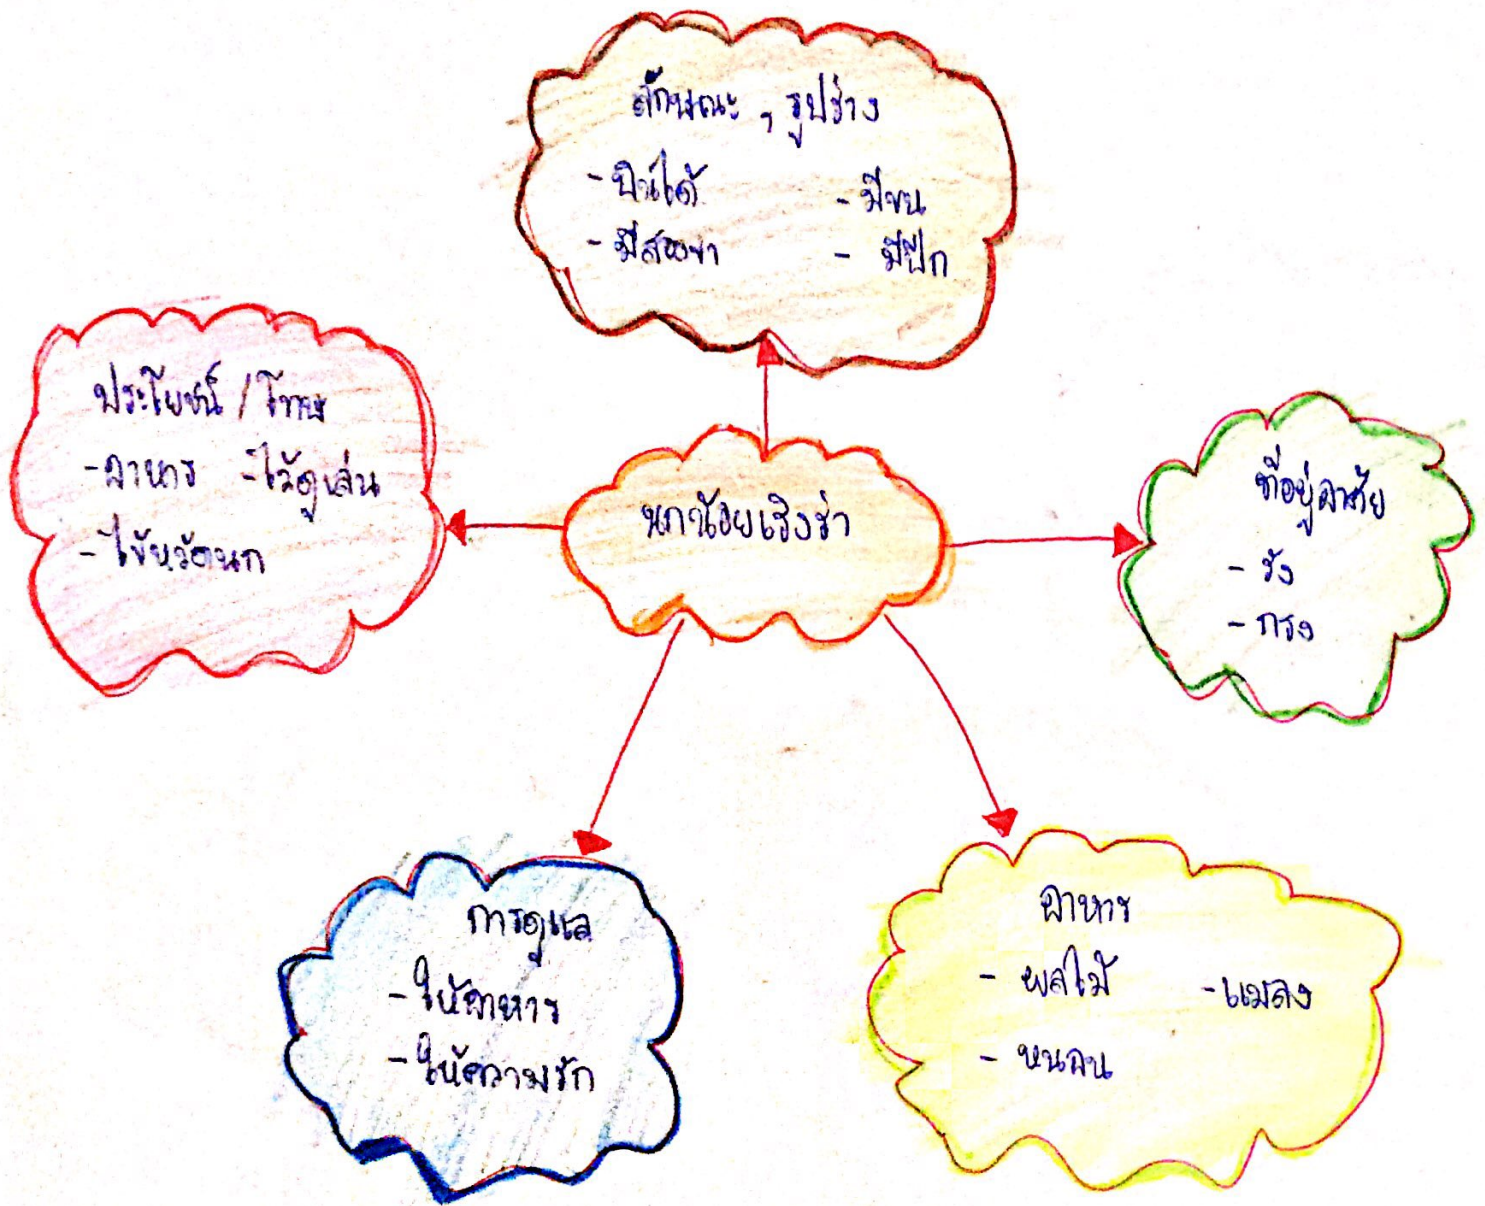 ลักษณะ , รูปร่าง
- บินได้ - มีขน
- มีสองขา - มีปีก
ประโยชน์ / โทษ
- อาหาร - ไว้ดูเล่น
- ไข้หวัดนก
นกน้อยเริงร่า
ที่อยู่อาศัย
- รัง
- กรง
การดูแล
- ให้อาหาร
- ให้ความรัก
อาหาร
- ผลไม้ - แมลง
- หนอน